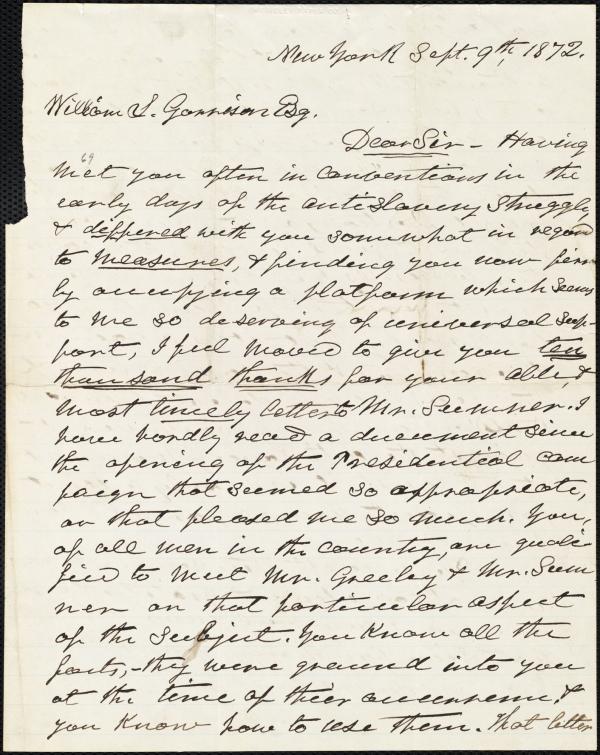 New York Sept. 9th, 1872.
William L. Garrison Esq.
Dear Sir - Having
69
met you often in conventions in the
early days of the antislavery struggle,
& differed with you somewhat in regard
to measures, & finding you now firm
ly occupying a platform which seems
to me so deserving of universal sup-
port, I feel moved to give you ten
thousand thanks for your able, &
most timely letter to Mr. Sumner. I
have hardly read a document since
the opening of the Presidential cam
paign that seemed so appropriate,
or that pleased me so much. You,
of all men in the country, are quali-
fied to meet Mr. Greeley & Mr. Sum
ner on that particular aspect
of the subject. You know all the
facts, - they were ground into you
at the time of their occurrence, &
you know how to use them. That letter